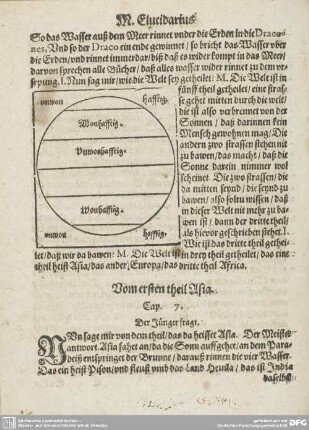 M. Elucidarius
So das Wasser auß dem Meer rinnet vnder die Erden in die Draco-
nes, Vnd so der Draco ein ende gewinnet / so bricht das Wasser vber
die Erden / vnd rinnet immerdar / biß daß es wider kompt in das Meer /
darvon sprechen alle Bücher / daß alles wasser wider rinnet zu dem vr-
sprung. I. Nun sag mir / wie die Welt sey getheilet: M. Die Welt ist in
fünff theil getheilet / eine stras-
se gehet mitten durch die welt /
die ist also verbrennet von der
Sonnen / daß darinnen kein
Mensch gewohnen mag / Die
andern zwo strassen stehen nit
zu bawen / das macht / daß die
Sonne darein nimmer wol
scheinet. Die zwo strassen / die
da mitten seynd / die seynd zu
bawen / also soltu wissen / daß
in dieser Welt nit mehr zu ba-
wen ist / dann der dritte theil /
als hievor geschrieben stehet. I.
Wie ist das dritte theil getheil-
unwon
hafftig.
Wonhafftig.
Vnwonhafftig.
Wonhafftig.
unwon
hafftig.
let / daß wir da bawen: M. Die Welt ist in drey theil getheilet / das eine
theil heist Asia / das ander / Europa / das dritte theil Africa.
Vom ersten theil Asia.
Cap. 7.
Der Jünger fragt.
NVn sage mir von dem theil / das da heisset Asia. Der Meister
antwort. Asia fahet an / da die Sonn auffgehet / an dem Para-
deiß entspringet der Brunne / darauß rinnen die vier Wasser.
Das ein heist Pison / vnd fleust vmb das Land Hevila / das ist India
daselbst